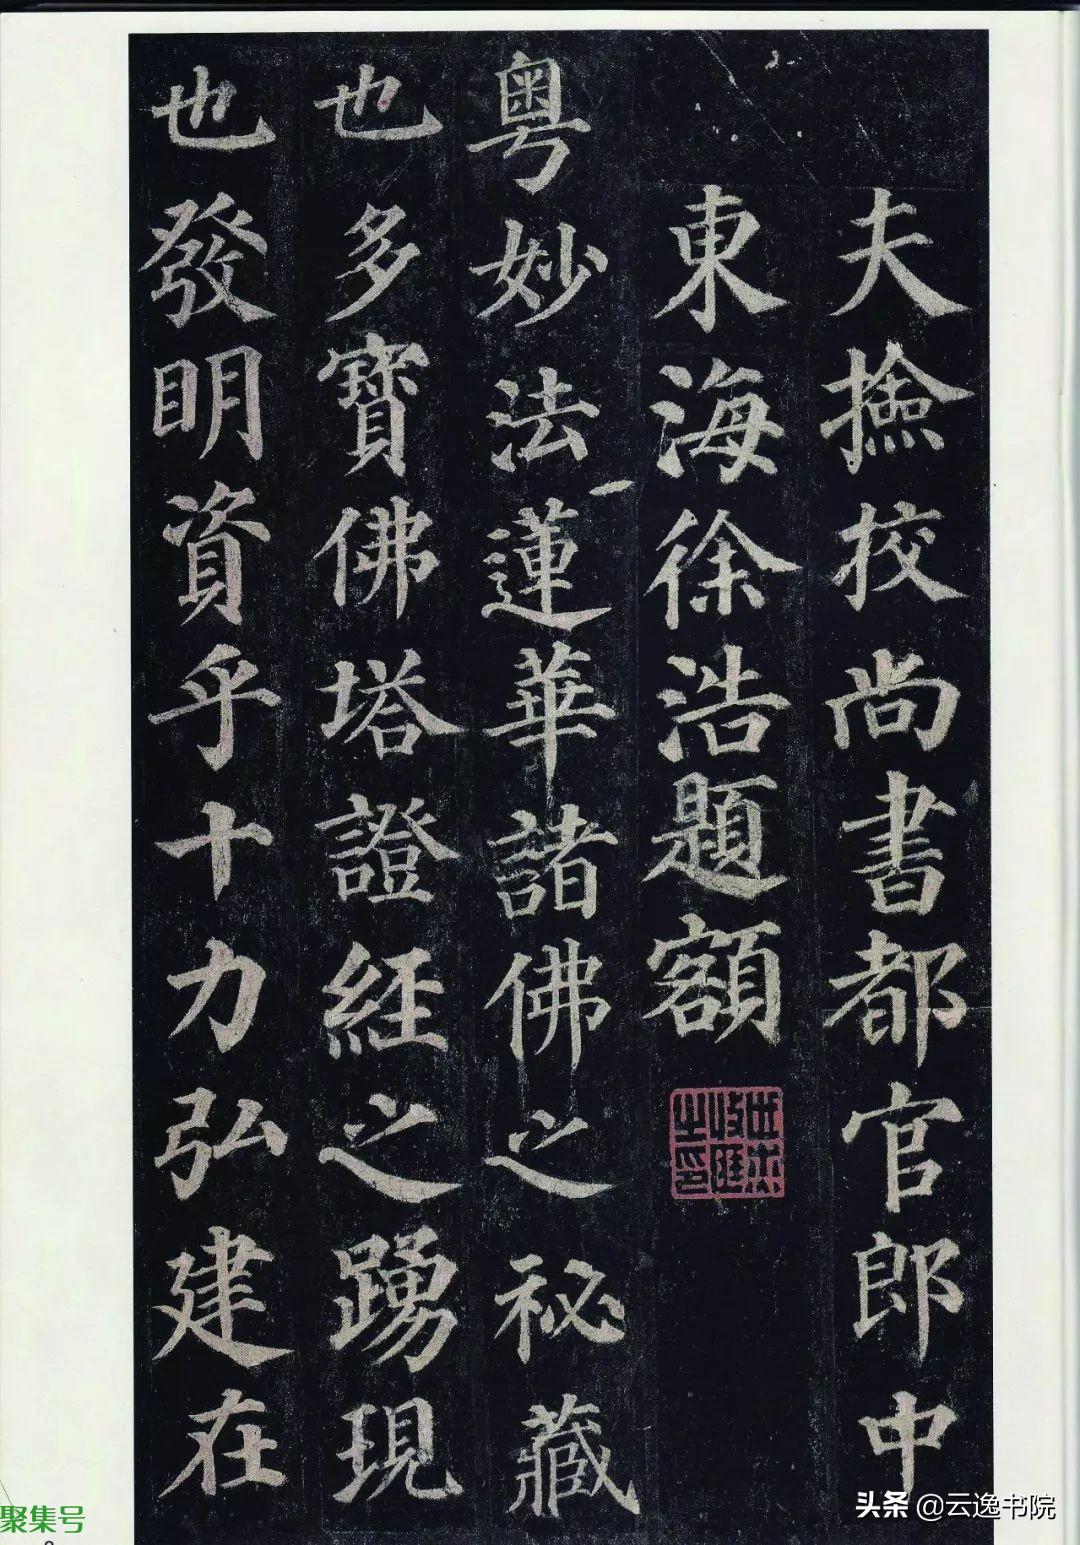 夫撿挍尚書都官郎中
東海徐浩題額
粵妙法蓮華諸佛之祕藏
也多寶佛塔證經之踴現
也發明資乎十力弘建在
聚集号
头条 @云逸书院